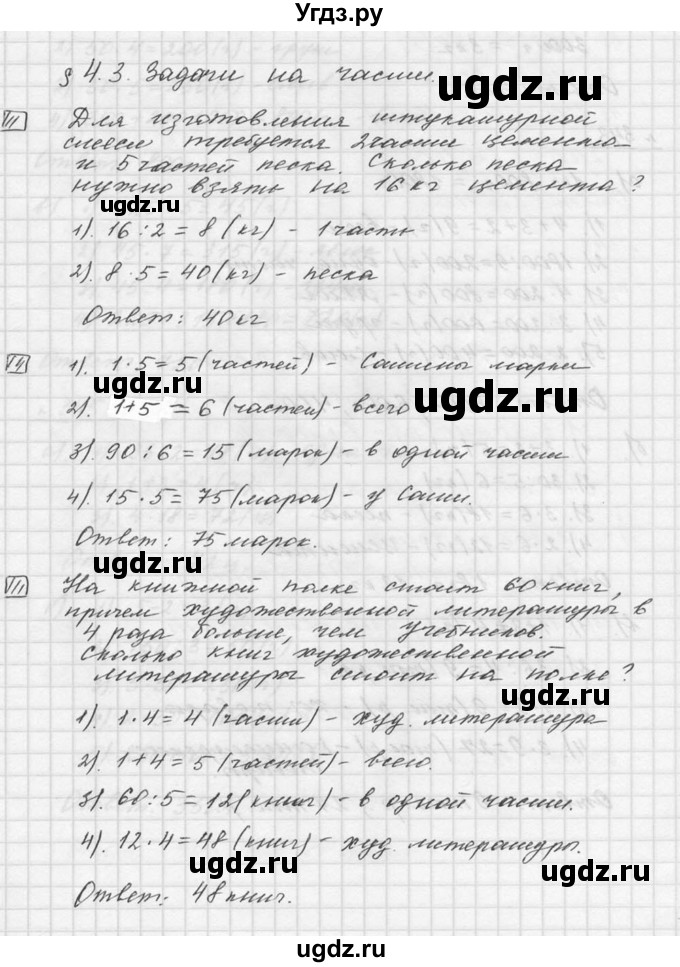 Угдз.ру
§ 4.3. Задачи на части.
VII Для изготовления штукатурной
смеси требуется 2 части цемента
и 5 частей песка. Сколько песка
нужно взять на 16 кг цемента?
ugdz.ru ugdz.ru
1). 16 : 2 = 8 (кг) - 1 часть
2). 8 · 5 = 40 (кг) - песка
ugdz.ru
Ответ: 40 кг
1). 1 · 5 = 5 (частей) - Сашины марки
ugdz.ru
2). 1+5 = 6 (частей) - всего
ugdz.ru
3). 90 : 6 = 15 (марок) - в одной части
4). 15 · 5 = 75 (марок) - у Саши.
ugdz.ru
Ответ: 75 марок.
ugdz.ru
VIII На книжной полке стоит 60 книг,
причем художественной литературы в
4 раза больше, чем учебников.
Сколько книг художественной
литературы стоит на полке?
ugdz.ru
1). 1 · 4 = 4 (части) - худ. литература
ugdz.ru
2). 1 + 4 = 5 (частей) - всего.
3). 60 : 5 = 12 (книг) - в одной части.
ugdz.ru
4). 12 · 4 = 48 (книг) - худ. литературы.
ugdz.ru
Ответ: 48 книг.
ugdz.ru